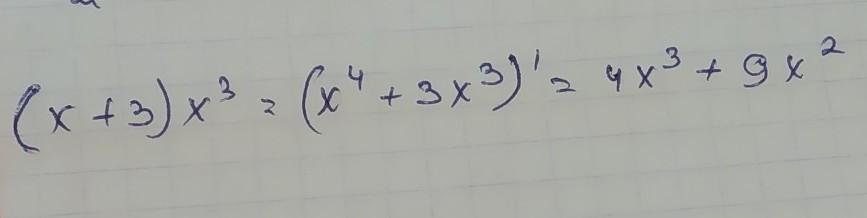 (x+3)x³ = (x⁴ + 3x³)' = 4x³ + 9x²